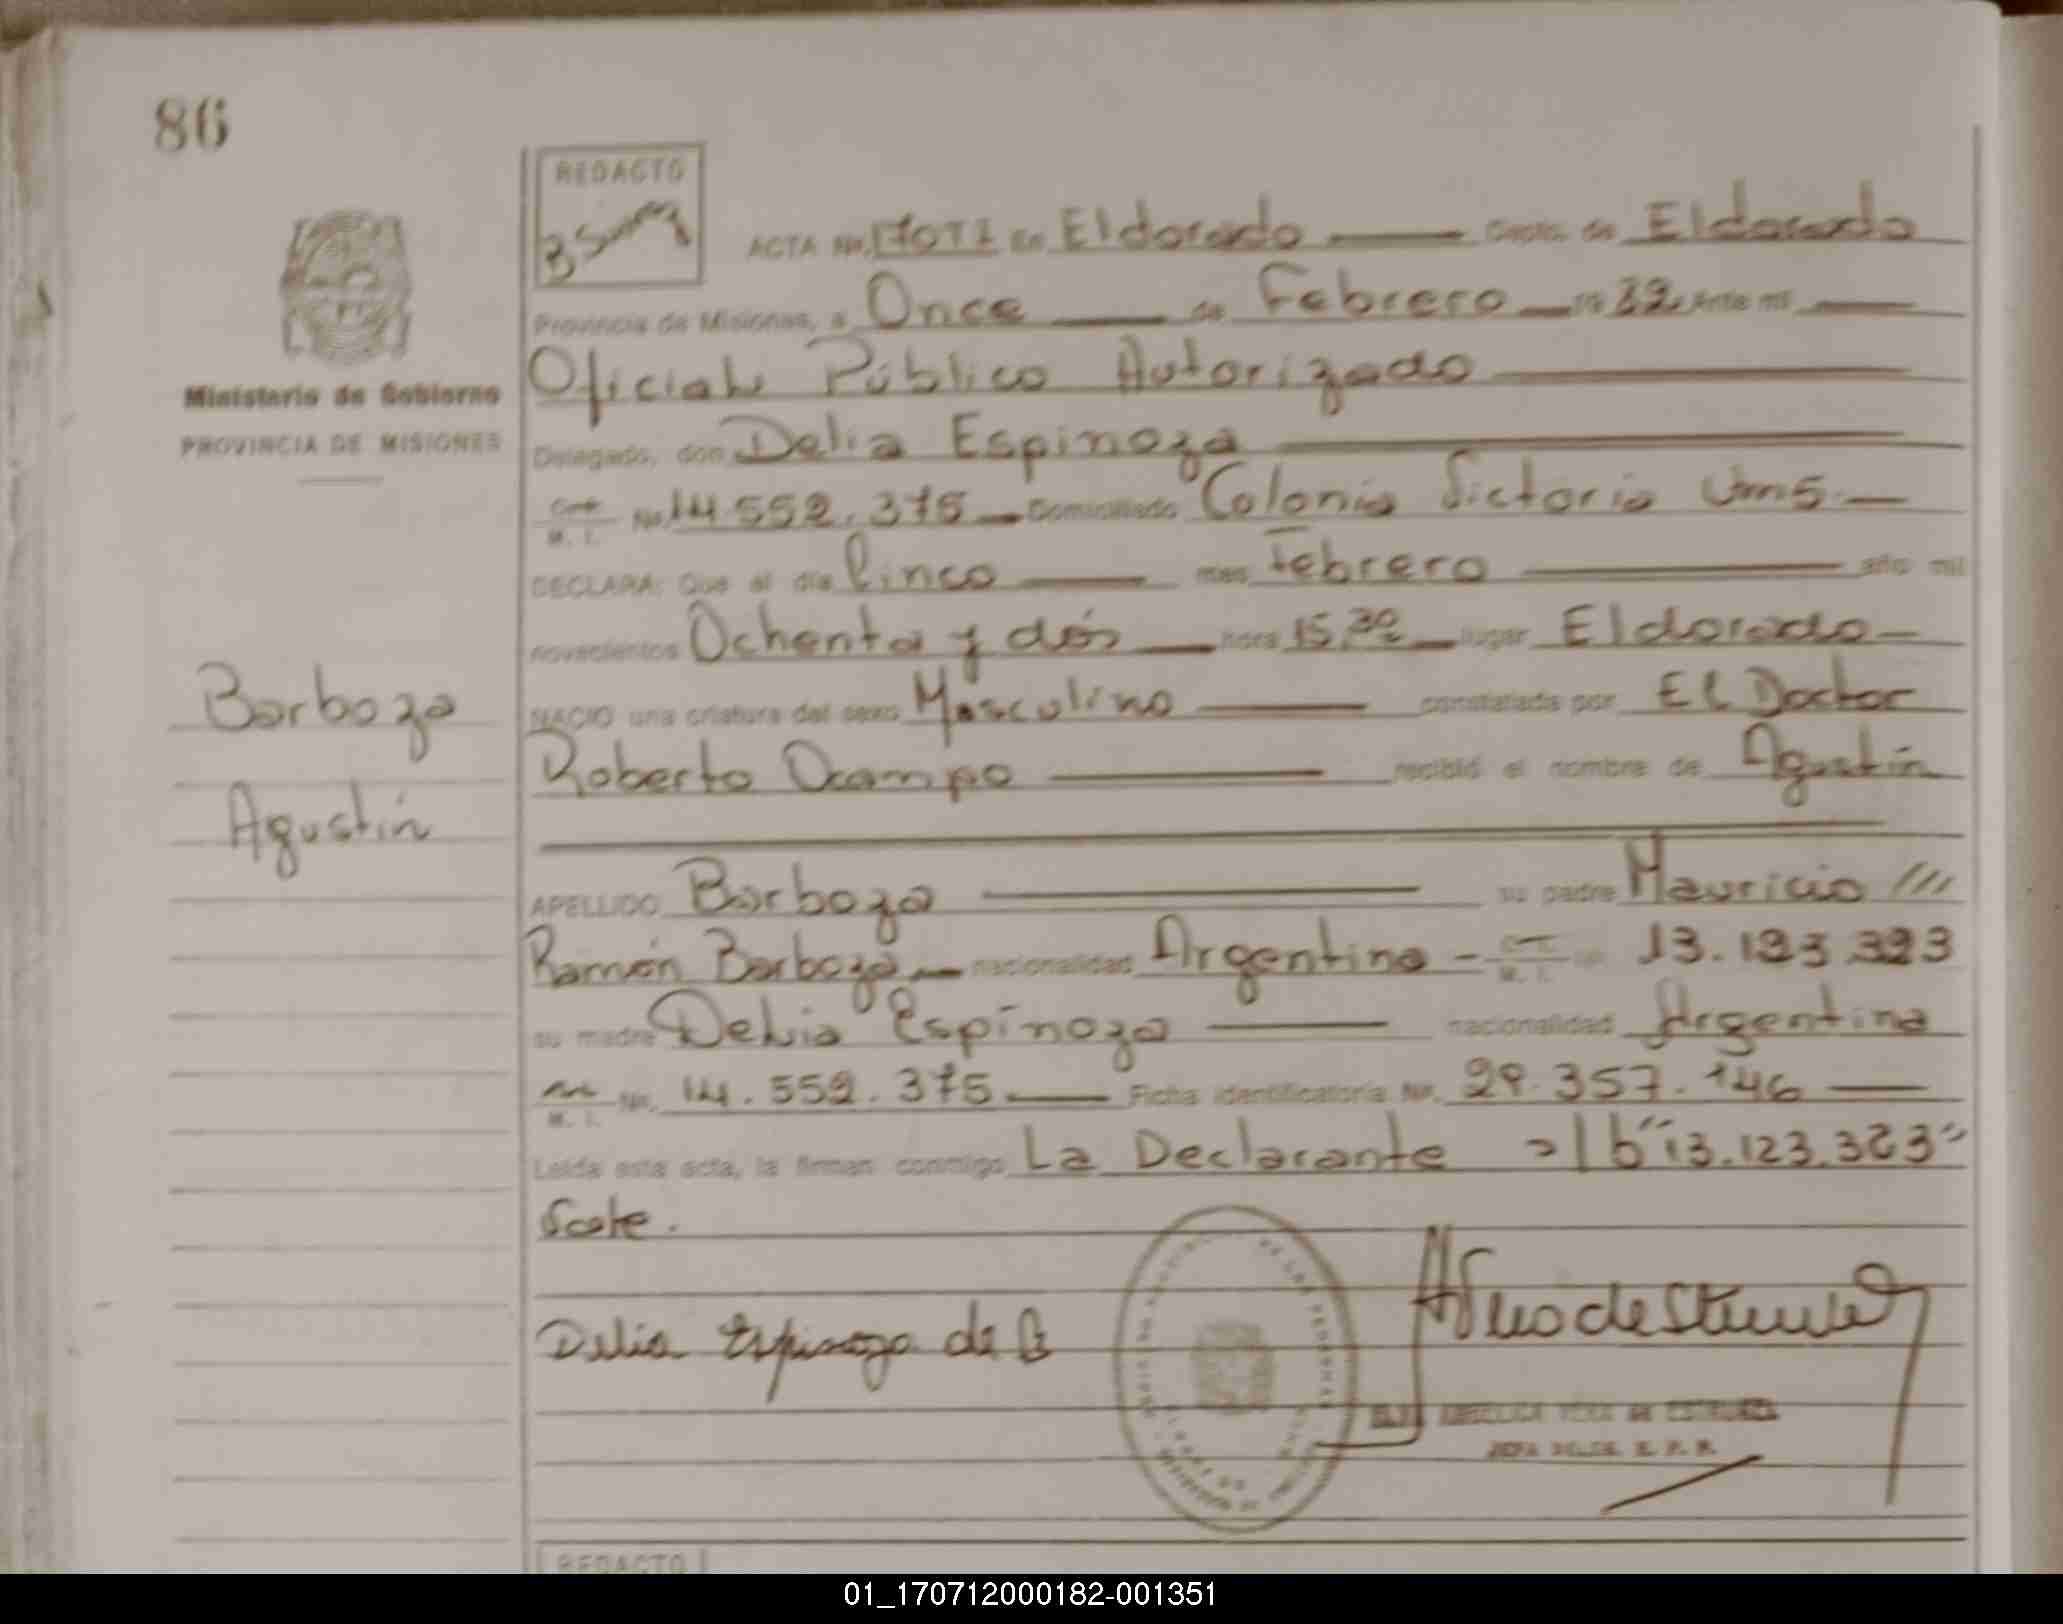 86
REDACTO
ACTA No. En Eldorado Depto. de Eldorado
Provincia de Misiones, a Once de Febrero 19 82 Ante mi
Oficiale Público Autorizado
Delegado, don Delia Espinoza
M. I. No. 14.552.375 Domiciliado Colonia Victoria
DECLARA: Que el día Cinco mes Febrero año mil
novecientos Ochenta y dós hora 15,30 lugar Eldorado
NACIO una criatura del sexo Masculino constatada por El Doctor
Roberto Ocampo recibió el nombre de Agustín
APELLIDO Barboza su padre Mauricio ///
Ramón Barboza nacionalidad Argentino M. I. 13.123.323
su madre Delia Espinoza nacionalidad Argentina
M. I. No. 14.552.375 Ficha identificatoria No. 29.357.146
Leída esta acta, la firman conmigo La Declarante
Delia Espinoza de B
Ministerio de Gobierno
PROVINCIA DE MISIONES
Barboza
Agustín
JEFA
REDACTO
01_170712000182-001351